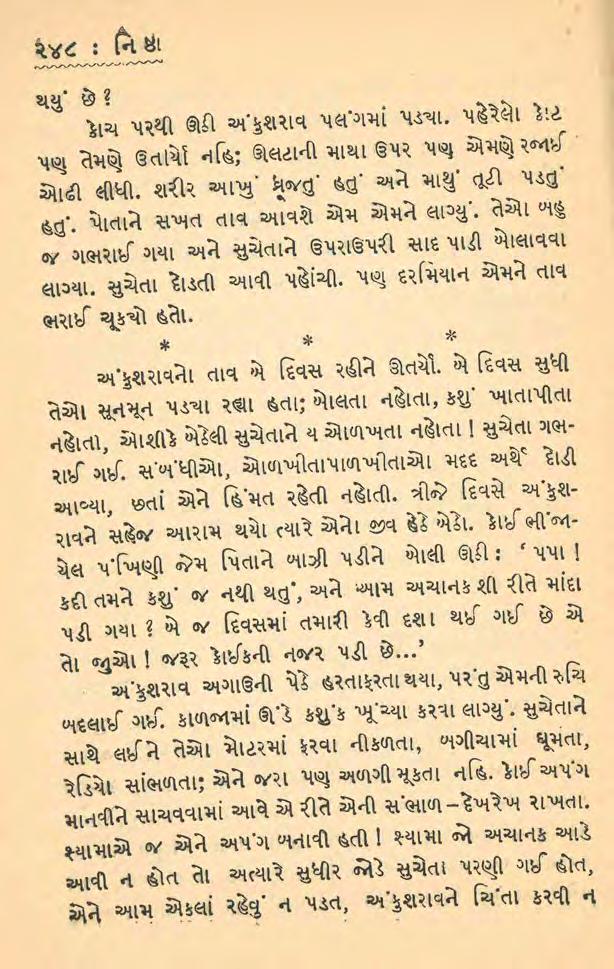 ૨૪૮ : નિષ્ઠા
થયું છે ?
કોચ પરથી ઊઠી અંકુશરાવ પલંગમાં પડ્યા. પહેરેલો કોટ
પણ તેમણે ઉતાર્યો નહિ; ઊલટાની માથા ઉપર પણ એમણે રજાઈ
ઓઢી લીધી. શરીર આખું ધ્રૂજતું હતું અને માથું તૂટી પડતું
હતું. પોતાને સખત તાવ આવશે એમ એમને લાગ્યું. તેઓ બહુ
જ ગભરાઈ ગયા અને સુચેતાને ઉપરાઉપરી સાદ પાડી બોલાવવા
લાગ્યા. સુચેતા દોડતી આવી પહોંચી. પણ દરમિયાન એમને તાવ
ભરાઈ ચૂક્યો હતો.
* * *
અંકુશરાવનો તાવ બે દિવસ રહીને ઊતર્યો. બે દિવસ સુધી
તેઓ સૂનમૂન પડ્યા રહ્યા હતા; બોલતા નહોતા, કશું ખાતાપીતા
નહોતા, ઓશીકે બેઠેલી સુચેતાને ય ઓળખતા નહોતા ! સુચેતા ગભ-
રાઈ ગઈ. સંબંધીઓ, ઓળખીતાપાળખીતાઓ મદદ અર્થે દોડી
આવ્યા, છતાં એને હિંમત રહેતી નહોતી. ત્રીજે દિવસે અંકુશ-
રાવને સહેજ આરામ થયો ત્યારે એનો જીવ હેઠે બેઠો. કોઈ ભીંજા-
યેલ પંખિણી જેમ પિતાને બાઝી પડીને બોલી ઊઠી : ‘ પપા !
કદી તમને કશું જ નથી થતું, અને આમ અચાનક શી રીતે માંદા
પડી ગયા ? બે જ દિવસમાં તમારી કેવી દશા થઈ ગઈ છે એ
તો જુઓ ! જરૂર કોઈકની નજર પડી છે...’
અંકુશરાવ અગાઉની પેઠે હરતાફરતા થયા, પરંતુ એમની રુચિ
બદલાઈ ગઈ. કાળજામાં ઊંડે કશુંક ખૂંચ્યા કરવા લાગ્યું. સુચેતાને
સાથે લઈને તેઓ મોટરમાં ફરવા નીકળતા, બગીચામાં ઘૂમતા,
રેડિયો સાંભળતા; એને જરા પણ અળગી મૂકતા નહિ. કોઈ અપંગ
માનવીને સાચવવામાં આવે એ રીતે એની સંભાળ – દેખરેખ રાખતા.
શ્યામાએ જ એને અપંગ બનાવી હતી ! શ્યામા જો અચાનક આડે
આવી ન હોત તો અત્યારે સુધીર જોડે સુચેતા પરણી ગઈ હોત,
એને આમ એકલાં રહેવું ન પડત, અંકુશરાવને ચિંતા કરવી ન